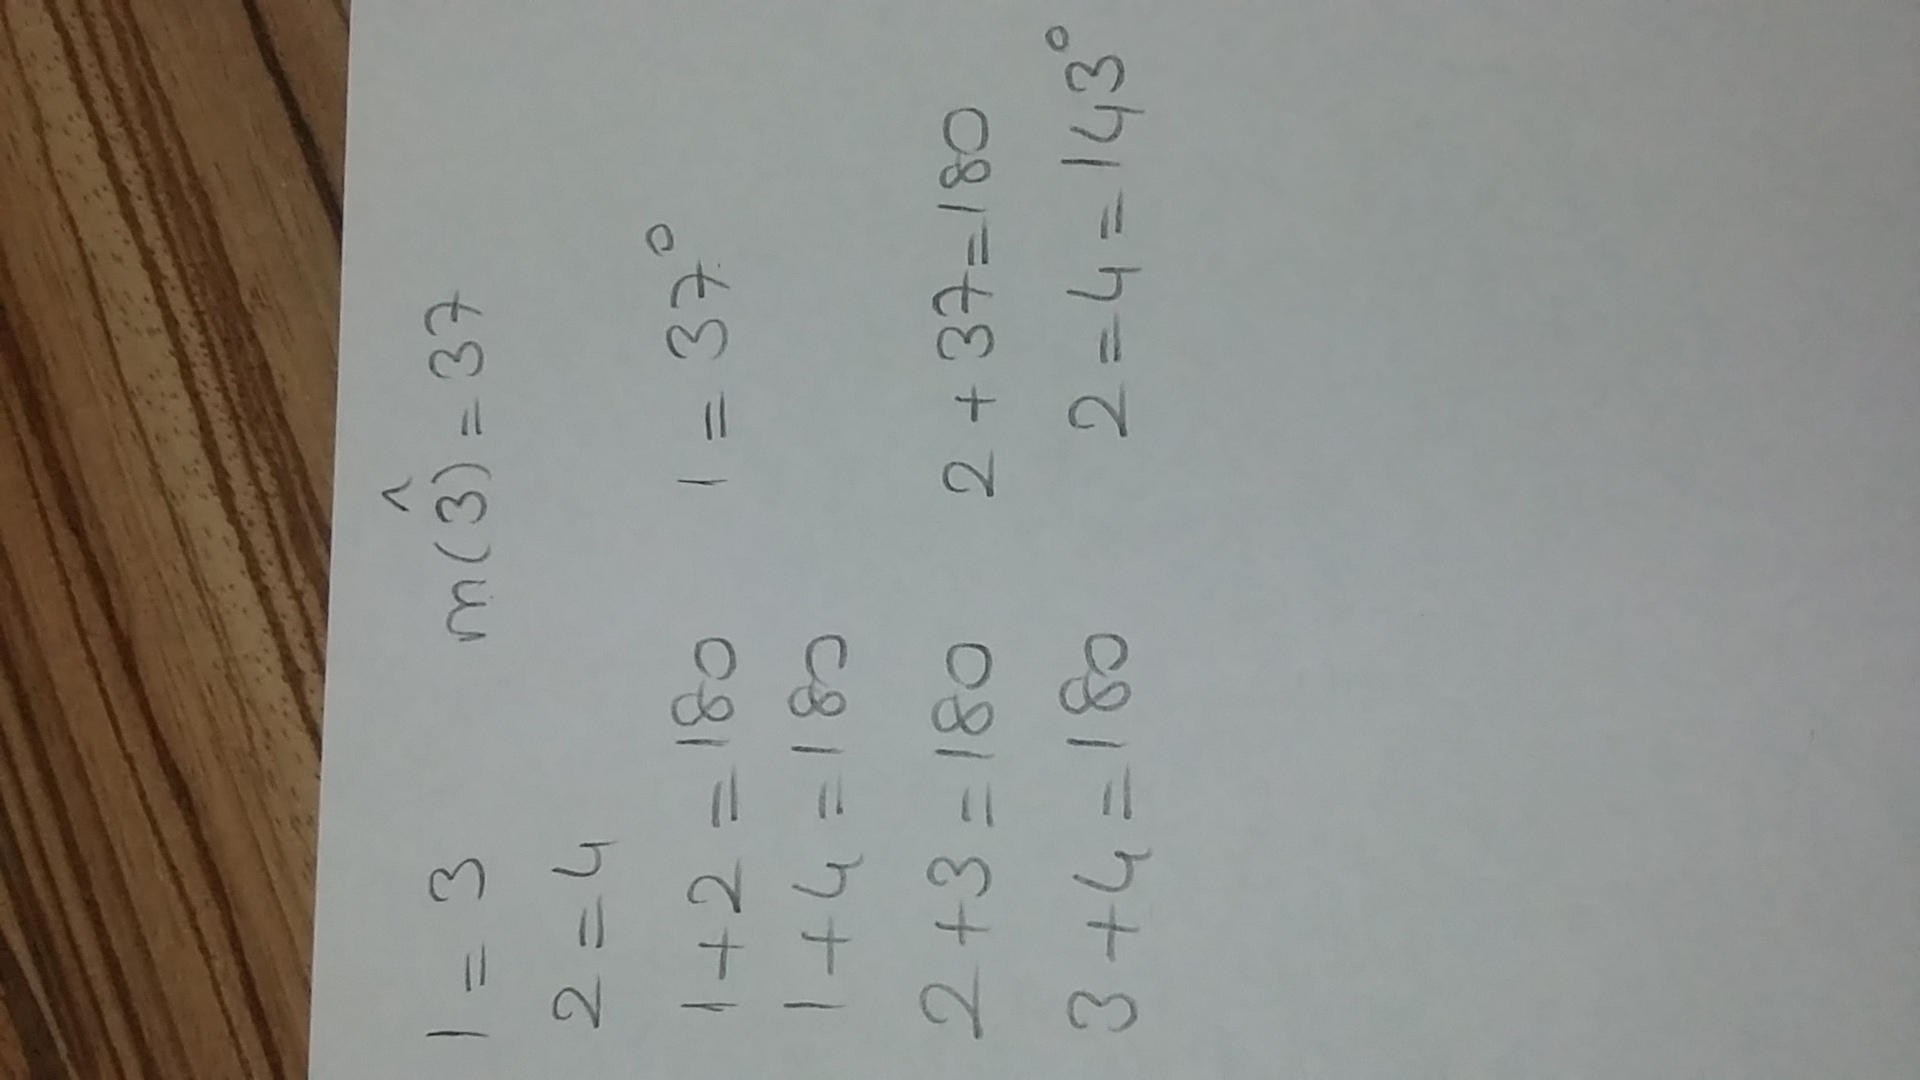 1 = 3 m(3̂) = 37
2 = 4
1 + 2 = 180 1 = 37°
1 + 4 = 180
2 + 3 = 180 2 + 37 = 180
3 + 4 = 180 2 = 4 = 143°